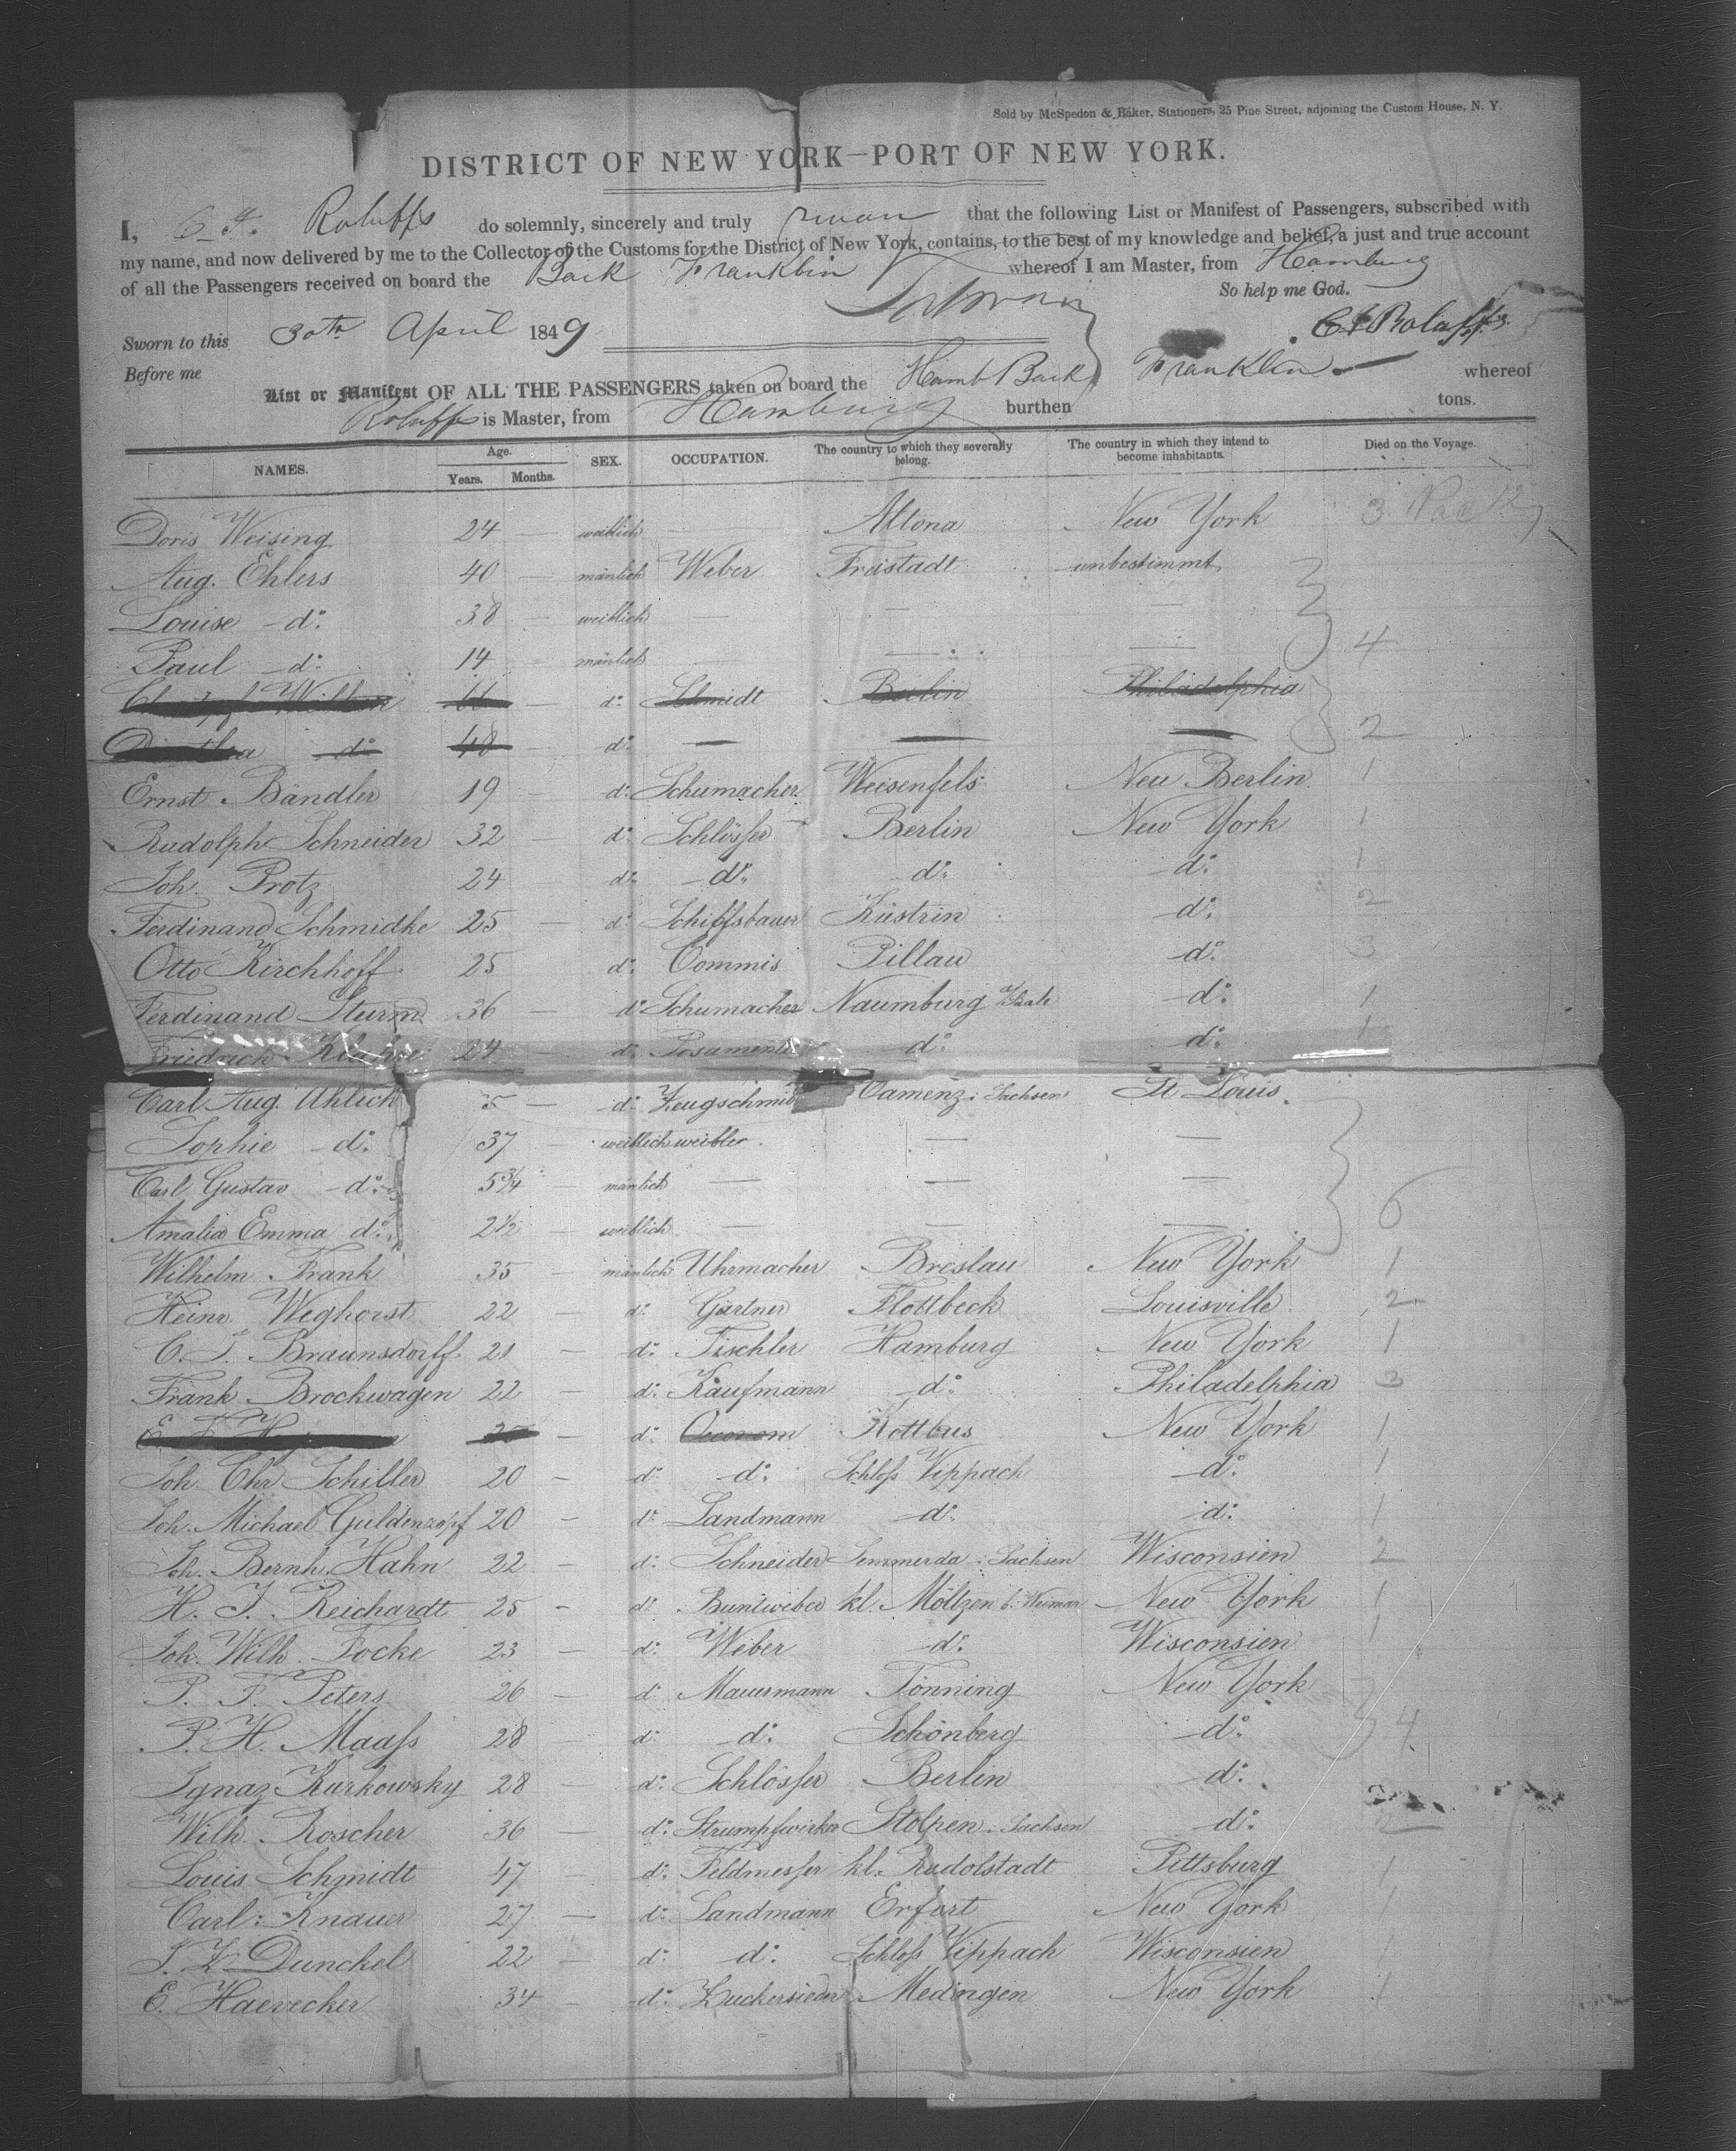 Sold by McSpedon & Baker, Stationers, 25 Pine Street, adjoining the Custom House, N. Y.
DISTRICT OF NEW YORK—PORT OF NEW YORK.
I, C. F. Roluffs do solemnly, sincerely and truly swear that the following List or Manifest of Passengers, subscribed with
my name, and now delivered by me to the Collector of the Customs for the District of New York, contains, to the best of my knowledge and belief, a just and true account
of all the Passengers received on board the Bark Franklin whereof I am Master, from Hamburg
So help me God.
Sworn to this 30th April 1849 C F Roluffs
Before me
List or Manifest OF ALL THE PASSENGERS taken on board the Hamb Bark Franklin whereof
Roluffs is Master, from Hamburg burthen tons.
NAMES. Age. Years. Months. SEX. OCCUPATION. The country to which they severally belong. The country in which they intend to become inhabitants. Died on the Voyage.
Doris Weising 24 — weiblich — Altona New York 3
Aug. Ehlers 40 — mänlich Weber Freistadt unbestimmt
Louise do. 38 — weiblich — — —
Paul do. 14 — mänlich — — — 4
66 — do. Schmidt Berlin Philadelphia
do 48 — do. — — — 2
Ernst Bändler 19 — do. Schumacher Weisenfels New Berlin 1
Rudolph Schneider 32 — do. Schlösser Berlin New York 1
Joh. Protz 24 do. do. do. do. 1
Ferdinand Schmidke 25 — do. Schiffsbauer Küstrin do. 2
Otto Kirchhoff 25 do. Commis Pillau do. 3
Ferdinand Sturm 36 — do. Schumacher Naumburg do. 1
Friedrich 24 — do. do. do. 1
Carl Aug. Uhlich — do. Zeugschmid Camenz: Sachsen St. Louis.
Sophie do. 37 — weiblich — —
Carl Gustav do. 5¾ — mänlich — — —
Amalia Emma do. 2½ — weiblich — — — 6
Wilhelm Frank 35 — mänlich Uhrmacher Breslau New York 1
Heinr. Weghorst 22 — do. Gärtner Flottbeck Louisville 2
C. J. Braunsdorff 21 — do. Tischler Hamburg New York 1
Frank Brockwagen 22 — do. Kaufmann do. Philadelphia 3
— do. Oeconom Kottbus New York 1
Joh. Chr. Schiller 20 — do. do. Schloss Vippach do. 1
Joh. Michael Guldenzopf 20 — do. Landmann do. do. 1
Joh. Bernh. Hahn 22 — do. Schneider Semmerda: Sachsen Wisconsien 2
H. J. Reichardt 25 — do. Buntweber kl. Möltzen b. Weimar New York 1
Joh. Wilh. Focke 23 — do. Weber do. Wisconsien 1
P. F. Peters 26 — do. Mauermann Tönning New York
P. H. Maass 28 — do. do. Schönberg do. 4
Ignaz Kurkowsky 28 — do. Schlösser Berlin do.
Wilh. Roscher 36 — do. Strumpfwirker Stolpen: Sachsen do.
Louis Schmidt 47 — do. Feldmesser kl. Rudolstadt Pittsburg 1
Carl: Knauer 27 — do. Landmann Erfort New York 1
Dunckel 22 — do. do. Schloss Vippach Wisconsien 1
E. Haevecker 34 — do. Zuckersieder Medingen New York 1